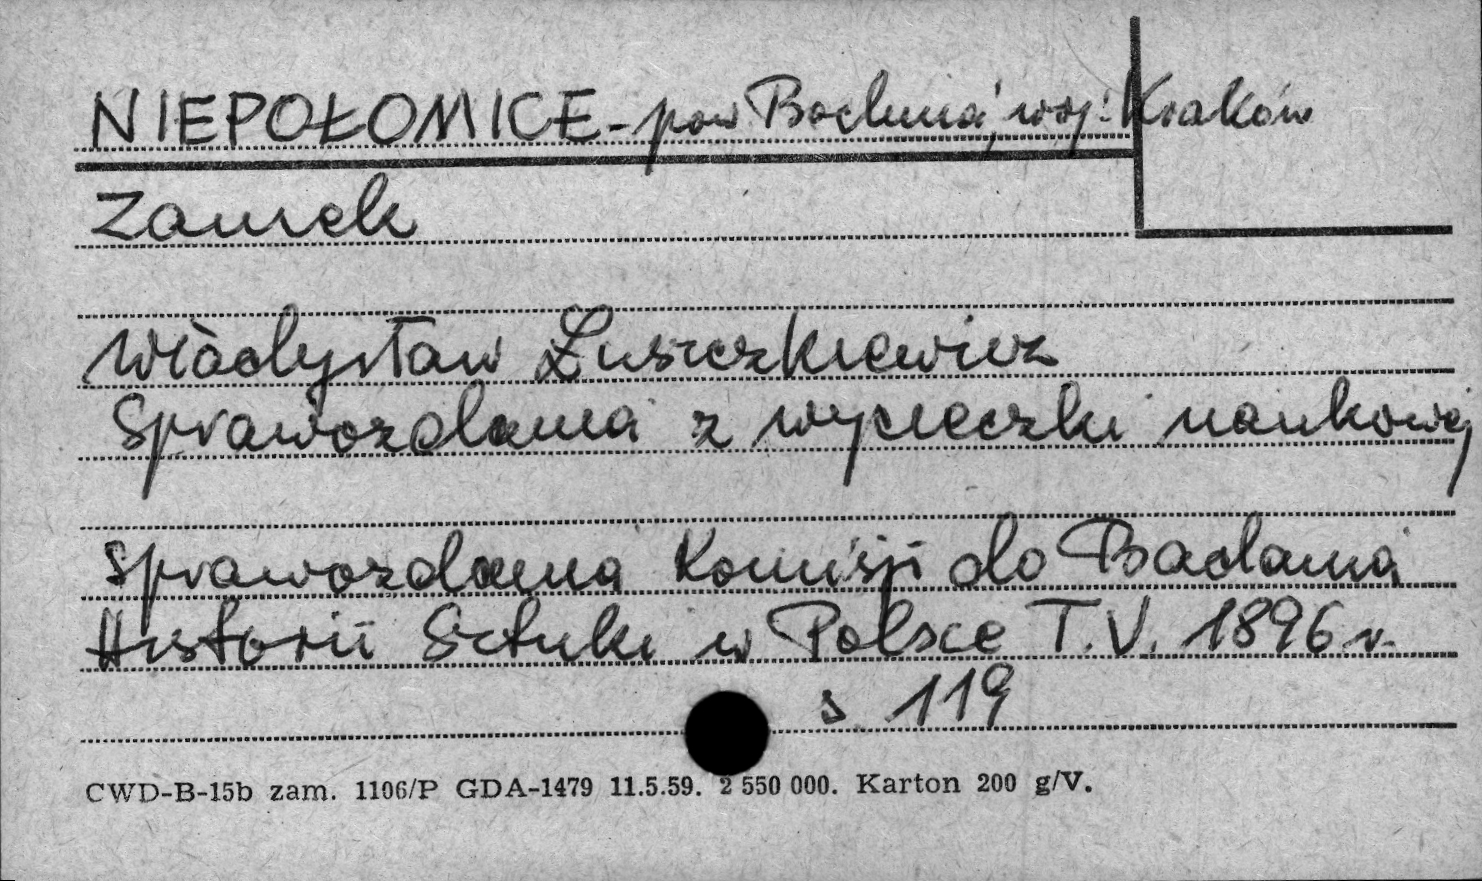 NIEPOŁOMICE - pow Bochnia, woj: Kraków
Zamek
Władysław Łuszczkiewicz
Sprawozdania z wycieczki naukowej
Sprawozdania Komisji do Badania
Historii Sztuki w Polsce T.V. 1896 r.
s 119
CWD-B-15b zam. 1106/P GDA-1479 11.5.59. 2 550 000. Karton 200 g/V.